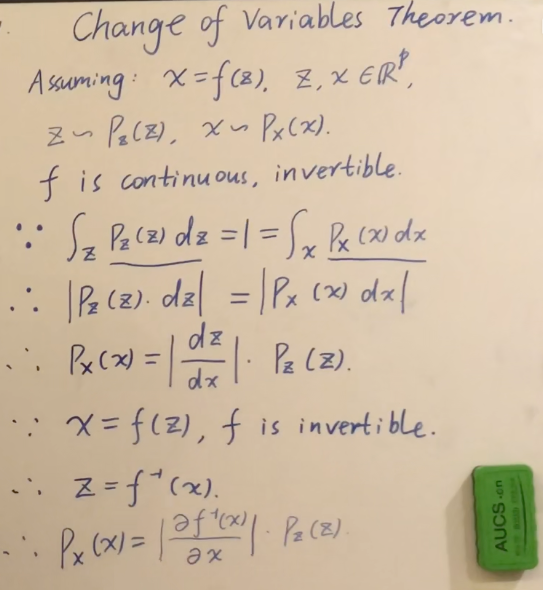 Change of Variables Theorem.
Assuming: x = f(z). z, x ∈ ℝᵖ,
z ~ P_z(z), x ~ P_x(x).
f is continuous, invertible.
∵ ∫_z P_z(z) dz = 1 = ∫_x P_x(x) dx
∴ |P_z(z)· dz| = |P_x (x) dx|
∴ P_x(x) = |dz/dx| · P_z(z).
∵ x = f(z), f is invertible.
∴ z = f⁻¹(x).
∴ P_x(x) = |∂f⁻¹(x)/∂x| · P_z(z).
AUCS.cn